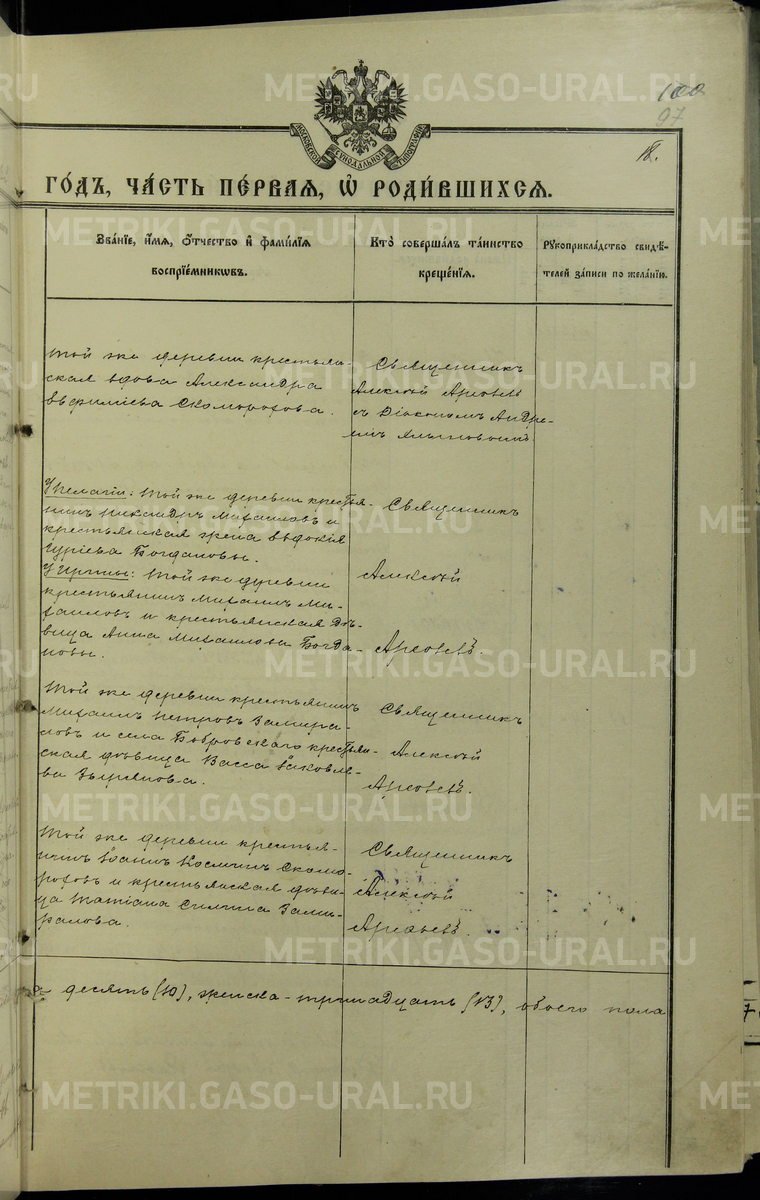 METRIKI.GASO-URAL.RU
100
97
МОСКОВСКОЙ СѴНОДАЛЬНОЙ ТИПОГРАФІИ
18.
ГО́ДЪ, ЧА́СТЬ ПЕ́РВАЯ, Ѡ҆ РОДИ́ВШИХСЯ.
Зва́ніе, и҆́мя, ѻ҆́тчество и҆ фами́лія
воспріе́мникѡвъ.
Кто̀ соверша́лъ та́инство
креще́нія.
Рꙋкоприкла́дство свидѣ́-
телей за́писи по жела́нію.
Той же деревни крестьян-
ская вдова Александра
Евфиміева Скоморохова.
Священникъ
Алексій Арефьевъ
съ Діакономъ Андре-
емъ
У Пелагіи: той же деревни крестья-
нинъ Никандръ Михаиловъ и
крестьянская жена Евдокія
Гуріева Богдановы.
У Ирины: той же деревни
крестьянинъ Михаилъ Ми-
хаиловъ и крестьянская дѣ-
вица Анна Михаилова Богда-
новы.
Священникъ
Алексій
Арефьевъ.
Той же деревни крестьянинъ
Михаилъ Петровъ Замира-
ловъ и села Бобровскаго крестьян-
ская дѣвица Васса Іаковле-
ва Зырянова.
Священникъ
Алексій
Арефьевъ.
Той же деревни крестья-
нинъ Іоаннъ Космичъ Скомо-
роховъ и крестьянская дѣви-
ца Татіана Силина Зами-
ралова.
Священникъ
Алексій
Арефьевъ.
а десять (10), женска - тринадцать (13), обоего пола